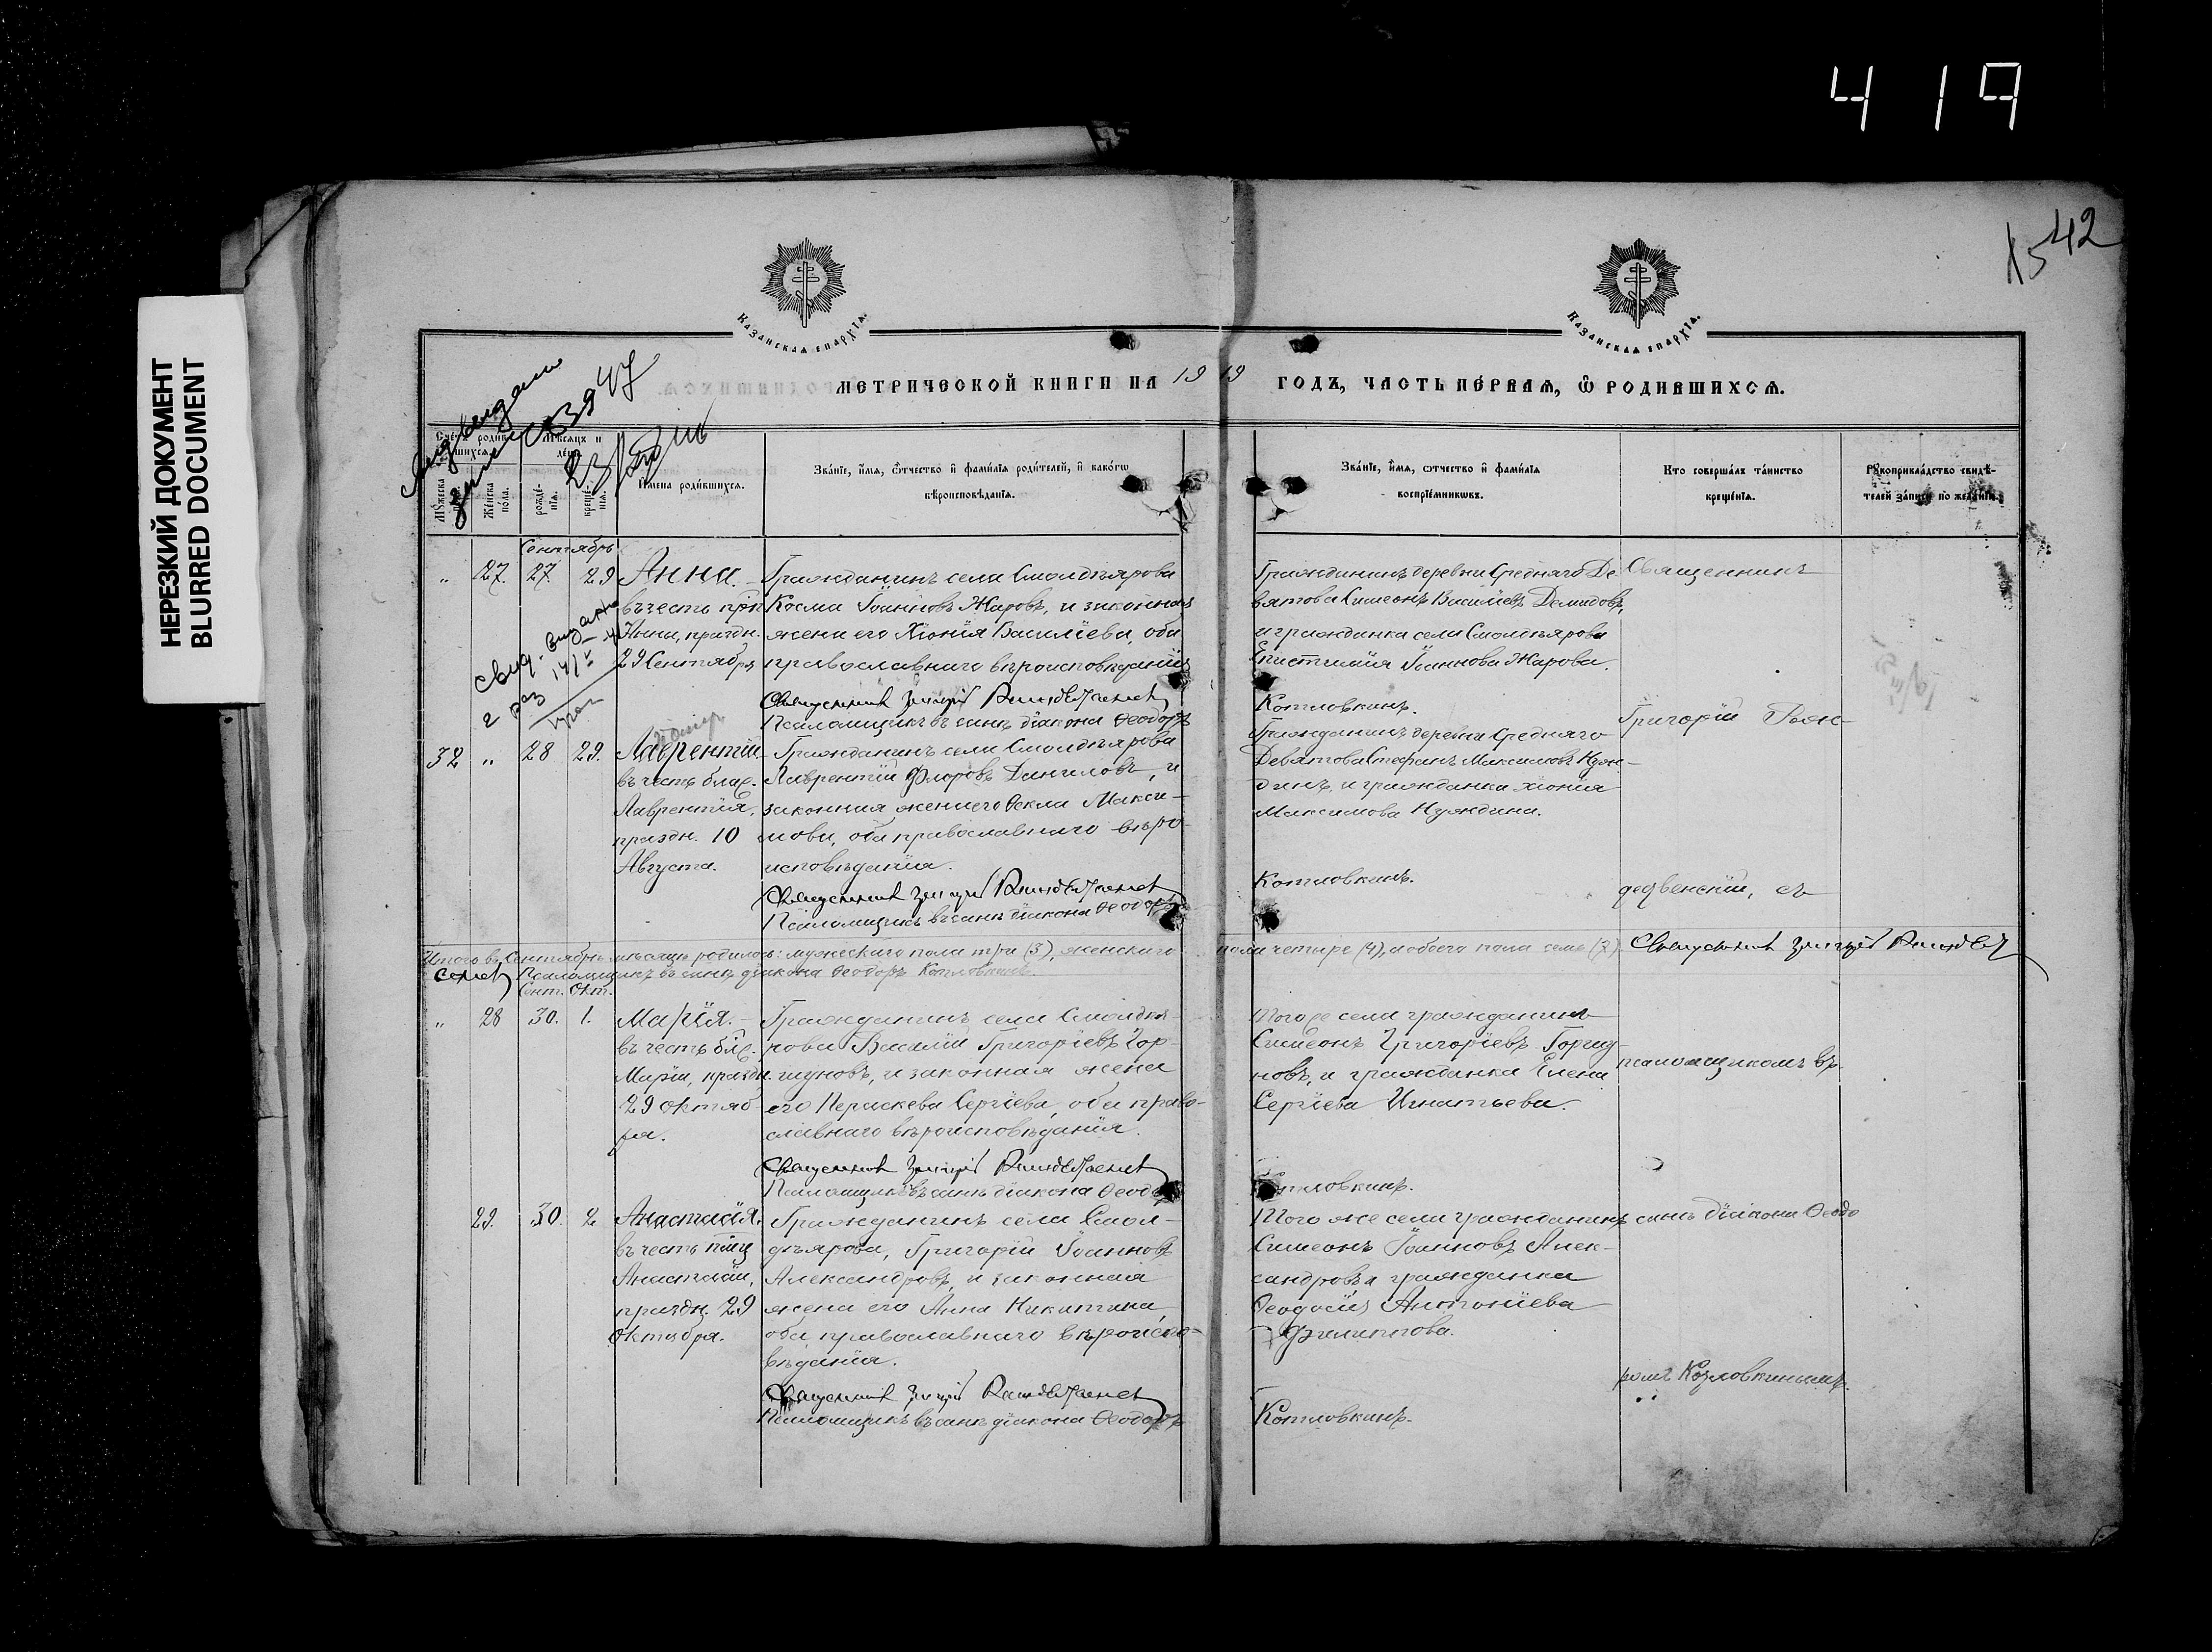 4 19
НЕРЕЗКИЙ ДОКУМЕНТ
BLURRED DOCUMENT
42
15
КАЗАНСКАѦ ЕПАРХІѦ.
КАЗАНСКАѦ ЕПАРХІѦ.
МЕТРИЧЕСКОЙ КНИГИ НА 1919 ГОДЪ, ЧАСТЬ ПЕРВАѦ, Ѽ РОДИВШИХСѦ.
Счётъ родившихсѧ.
Мѣсяцъ и день
Мꙋжеска пола.
Женска пола.
рожденіѧ.
крещеніѧ.
Имена родившихсѧ.
Званіе, имѧ, ѿтчество и фамиліѧ родителей, и какогѡ
вѣроисповѣданіѧ.
Званіе, имѧ, ѿтчество и фамиліѧ
воспріемникѡвъ.
Кто совершалъ таинство
крещеніѧ.
Рꙋкоприкладство свидѣтелей записи по желанію.
Сентябрь
„ 27. 27 29 Анна.
въ честь прп
Анны, праздн.
29 Сентября
Гражданинъ села Смолдѣярова
Косма Іоанновъ Жаровъ, и законная
жена его Хіонія Василіева, оба
православнаго вѣроисповѣданія
Священникъ
Псаломщикъ въ санѣ діакона Ѳеодоръ
Гражданинъ деревни Средняго Де-
вятова Симеонъ Василіевъ Демидовъ,
и гражданка села Смолдѣярова
Епистимія Іоаннова Жарова.
Котловкинъ.
Священникъ
Григорій
свид. выдано
2 раз
32 „ 28 29. Лаврентій.
въ честь блаж.
Лаврентія,
праздн. 10
Августа.
Гражданинъ села Смолдѣярова
Лаврентій Флоровъ Даниловъ, и
законная жена его Ѳекла Макси-
мова, оба православнаго вѣро-
исповѣданія.
Священникъ
Псаломщикъ въ санѣ діакона Ѳеодоръ
Гражданинъ деревни Средняго
Девятова Стефанъ Максимовъ Нуж-
динъ, и гражданка Хіонія
Максимова Нуждина.
Котловкинъ.
съ
Итого въ Сентябрѣ мѣсяцѣ родилось: мужескаго пола три (3), женскаго пола четыре (4), и обоего пола семь (7). Священникъ
Псаломщикъ въ санѣ діакона Ѳеодоръ Котловкинъ
Сент. Окт.
„ 28 30. 1. Марія.
въ честь блж.
Маріи, праздн.
29 октяб-
ря.
Гражданинъ села Смолдѣя-
рова Василій Григоріевъ Гор-
шуновъ, и законная жена
его Параскева Сергіева, оба право-
славнаго вѣроисповѣданія.
Священникъ
Псаломщикъ въ санѣ діакона Ѳеодоръ
Того же села гражданинъ
Симеонъ Григоріевъ
новъ, и гражданка Елена
Сергіева Игнатьева.
Котловкинъ.
псаломщикомъ въ
29. 30. 2. Анастасія.
въ честь прмц
Анастасіи,
праздн. 29
Октября.
Гражданинъ села Смол-
дѣярова, Григорій Іоанновъ
Александровъ, и законная
жена его Анна Никитина
оба православнаго вѣроиспо-
вѣданія.
Священникъ
Псаломщикъ въ санѣ діакона Ѳеодоръ
Того же села гражданинъ
Симеонъ Іоанновъ Алек-
сандровъ и гражданка
Ѳеодосія Антоніева
Филиппова.
Котловкинъ.
санѣ діакона Ѳеодо
ромъ Котловкинымъ.